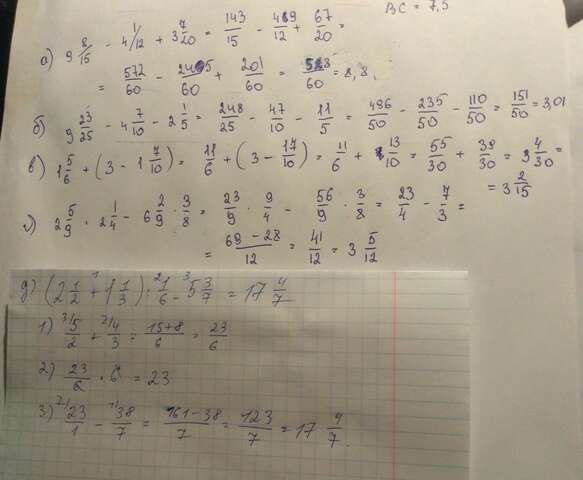 BC = 7,5
а) 9 8/15 - 4 1/12 + 3 7/20 = 143/15 - 49/12 + 67/20 =
= 572/60 - 245/60 + 201/60 = 528/60 = 8,8
б) 9 23/25 - 4 7/10 - 2 1/5 = 248/25 - 47/10 - 11/5 = 496/50 - 235/50 - 110/50 = 151/50 = 3,01
в) 1 5/6 + (3 - 1 7/10) = 11/6 + (3 - 17/10) = 11/6 + 13/10 = 55/30 + 39/30 = 3 4/30 =
= 3 2/15
г) 2 5/9 · 2 1/4 - 6 2/9 · 3/8 = 23/9 · 9/4 - 56/9 · 3/8 = 23/4 - 7/3 =
= 69 - 28/12 = 41/12 = 3 5/12
д) (2 1/2 + 1 1/3) · 6 - 5 3/7 = 17 4/7
1) 5/2 + 4/3 = 15+8/6 = 23/6
2) 23/6 · 6 = 23
3) 23/1 - 38/7 = 161-38/7 = 123/7 = 17 4/7.